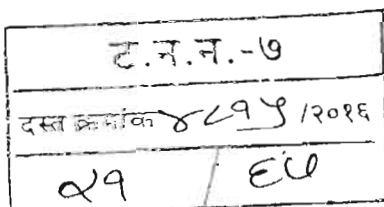 ट.न.न.-७
दस्त क्रमांक ४८१५ /२०१६
२१ / ६७